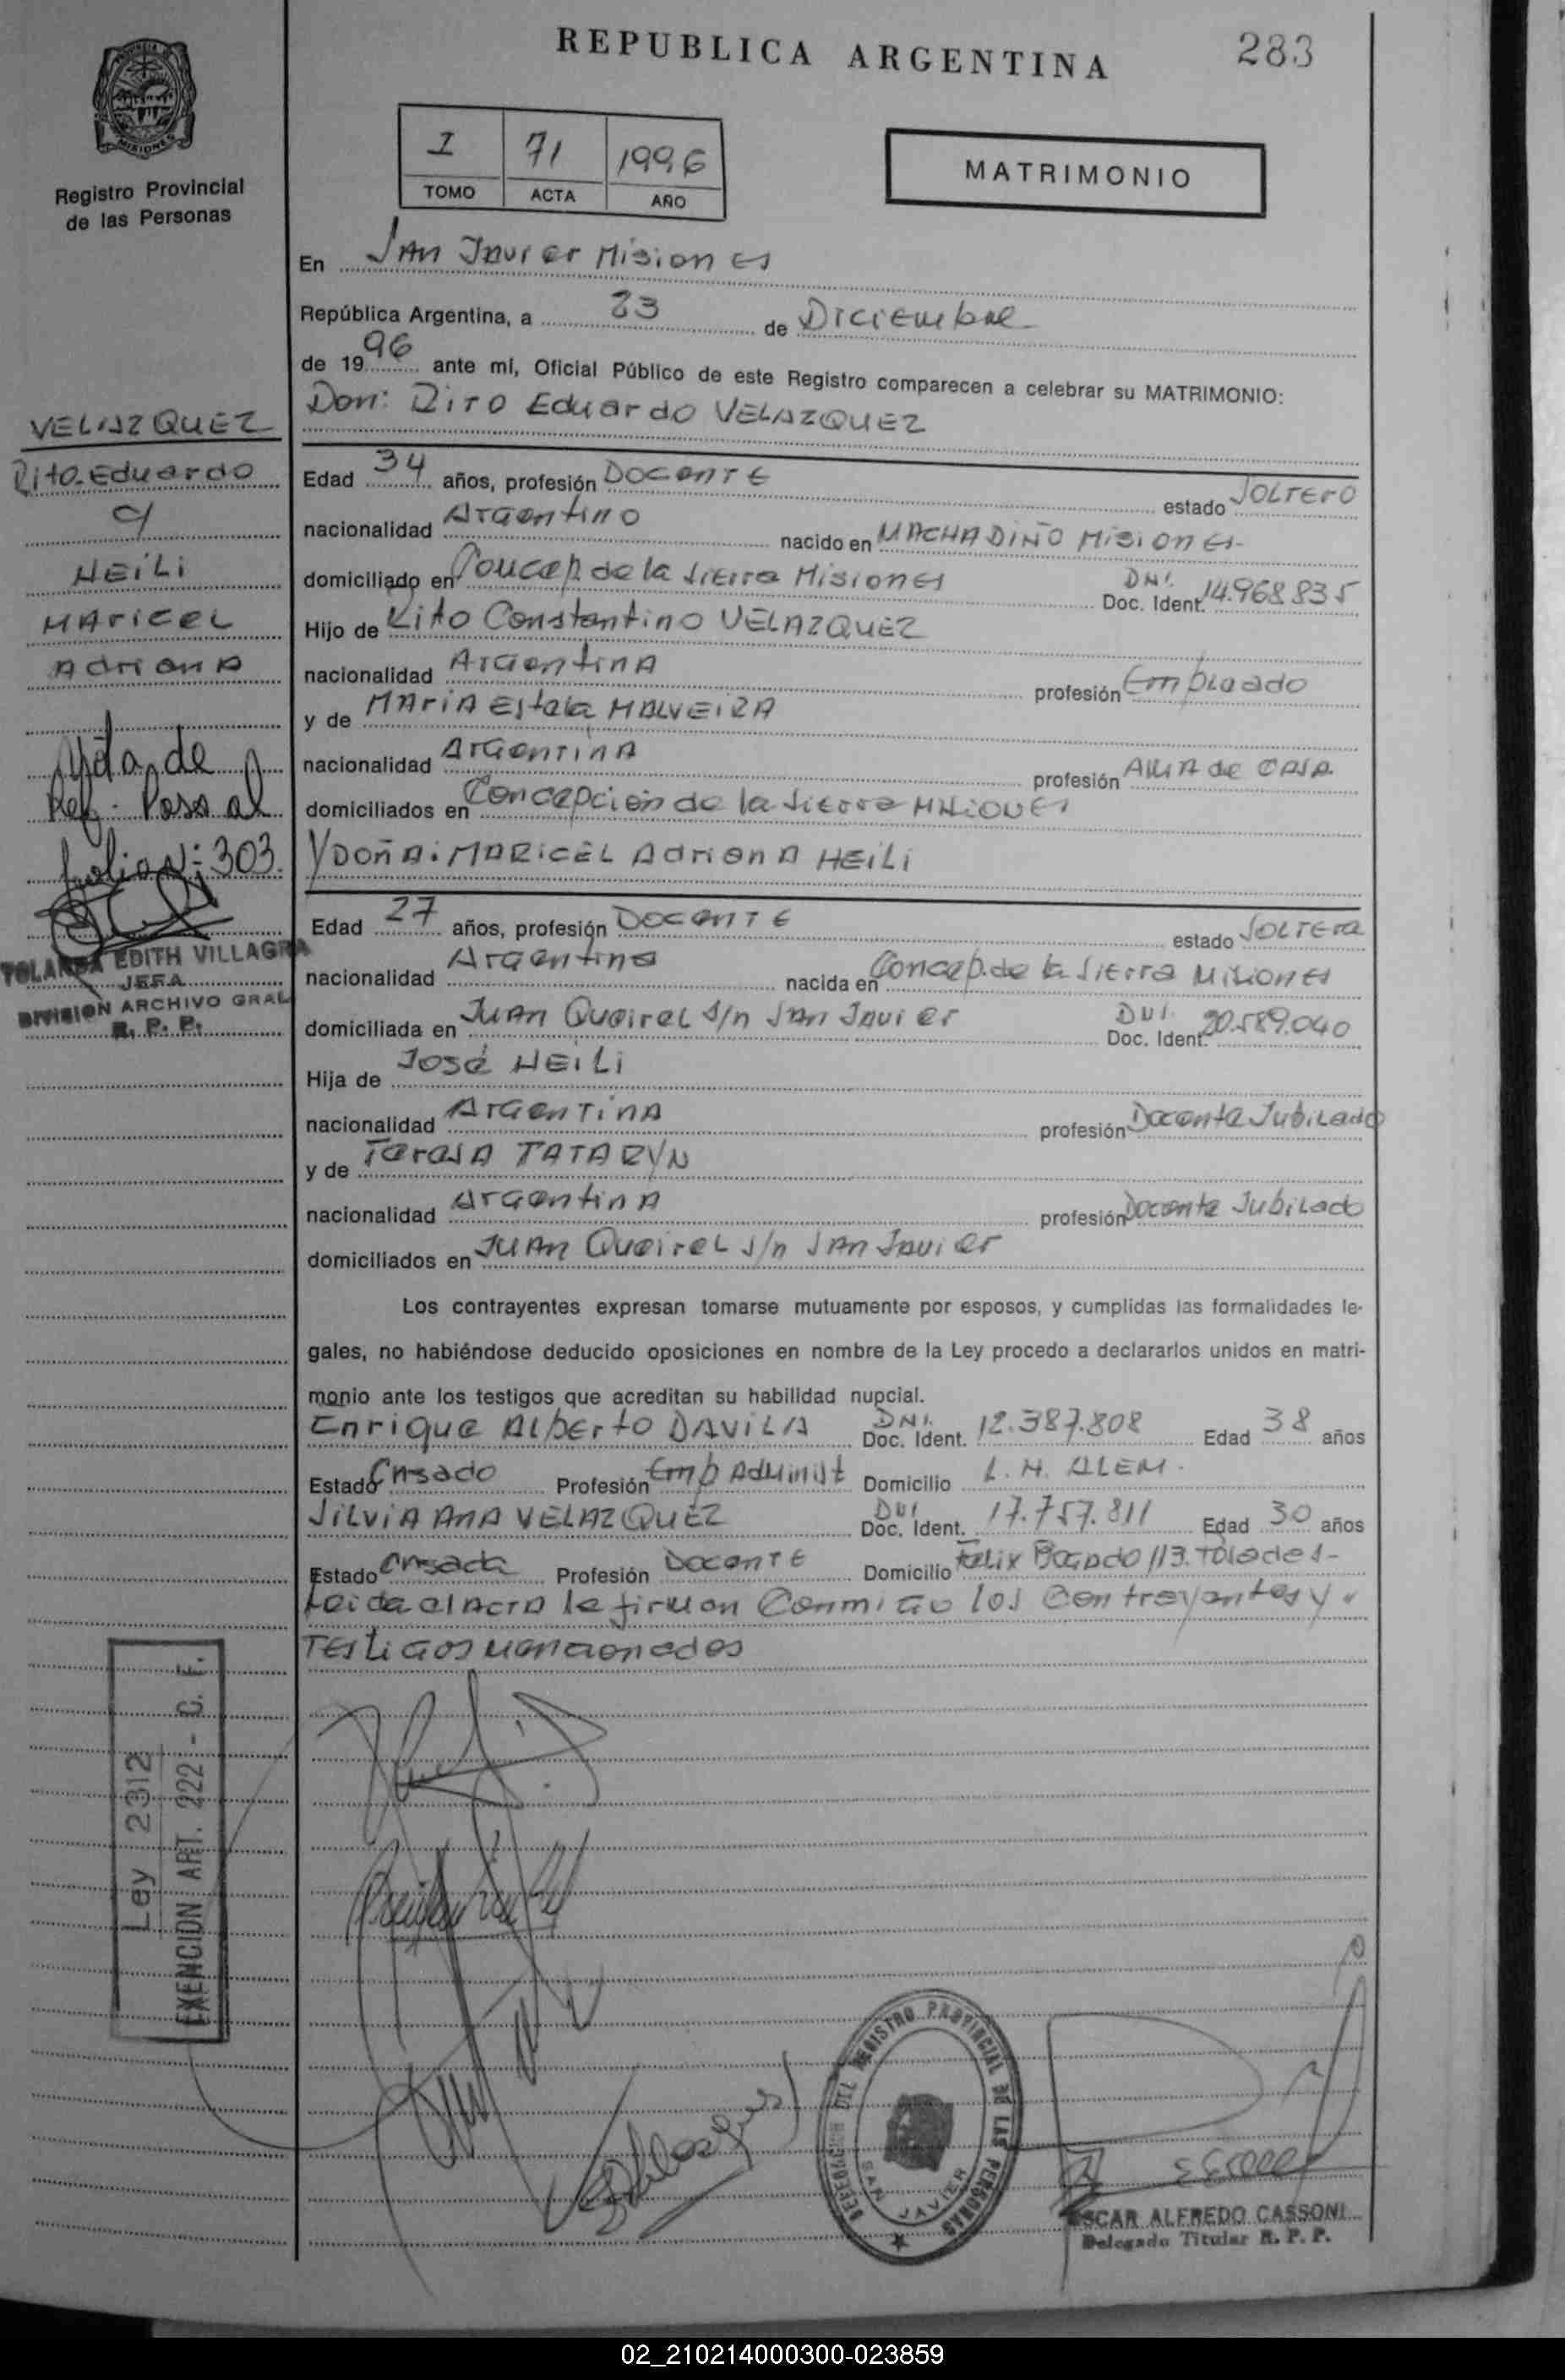 REPUBLICA ARGENTINA
283
MISIONES
Registro Provincial
de las Personas
I 71 1996
TOMO ACTA AÑO
MATRIMONIO
En San Javier Misiones
República Argentina, a 23 de Diciembre
de 1996 ante mí, Oficial Público de este Registro comparecen a celebrar su MATRIMONIO:
Don: Rito Eduardo VELAZQUEZ
VELAZQUEZ
Rito Eduardo
c/
HEILI
Maricel
Adriana
Nota de
Ref. Paso al
folio N: 303
YOLANDA EDITH VILLAGRA
JEFA
DIVISION ARCHIVO GRAL
R. P. P.
Edad 34 años, profesión Docente estado Soltero
nacionalidad Argentino nacido en MACHADIÑO Misiones
domiciliado en Concep. de la Sierra Misiones DNI. Doc. Ident. 14.968.835
Hijo de Rito Constantino VELAZQUEZ
nacionalidad Argentina profesión Empleado
y de Maria Estela
nacionalidad Argentina profesión Ama de Casa
domiciliados en Concepción de la Sierra Misiones
Y DOÑA: MARICEL Adriana HEILI
Edad 27 años, profesión Docente estado Soltera
nacionalidad Argentina nacida en Concep. de la Sierra Misiones
domiciliada en Juan Queirel s/n San Javier DNI. Doc. Ident. 20.589.040
Hija de José HEILI
nacionalidad Argentina profesión Docente Jubilado
y de Teresa TATARYN
nacionalidad Argentina profesión Docente Jubilado
domiciliados en Juan Queirel s/n San Javier
Los contrayentes expresan tomarse mutuamente por esposos, y cumplidas las formalidades le-
gales, no habiéndose deducido oposiciones en nombre de la Ley procedo a declararlos unidos en matri-
monio ante los testigos que acreditan su habilidad nupcial.
Enrique Alberto DAVILA DNI. Doc. Ident. 12.387.808 Edad 38 años
Estado Casado Profesión Emp Administ Domicilio L. N. ALEM.
Silvia Ana VELAZQUEZ DNI Doc. Ident. 17.757.811 Edad 30 años
Estado Casada Profesión Docente Domicilio Felix Bogado 113.
Leida el acta la firman Conmigo los Contrayentes y
Testigos mencionados
Ley 2312
EXENCION ART. 222 - C. F.
DEL REGISTRO PROVINCIAL DE LAS PERSONAS
SAN JAVIER
OSCAR ALFREDO CASSONI
Delegado Titular R. P. P.
02_210214000300-023859